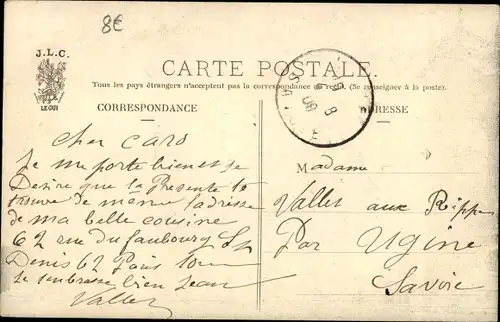 8€
J.L.C.
LE GUI
CARTE POSTALE.
Tous les pays étrangers n'acceptent pas la correspondance au recto. (Se renseigner à la poste).
CORRESPONDANCE
ADRESSE
Cher Caro
Je me porte bien et je
Desire que la Presente te
trouve de même l'adresse
de ma belle cousine
62 rue du faubourg St
Denis 62 Paris 10m
je t'embrasse bien Jean
Vallet
Madame
Vallet aux Rippes
Par Ugine
Savoie